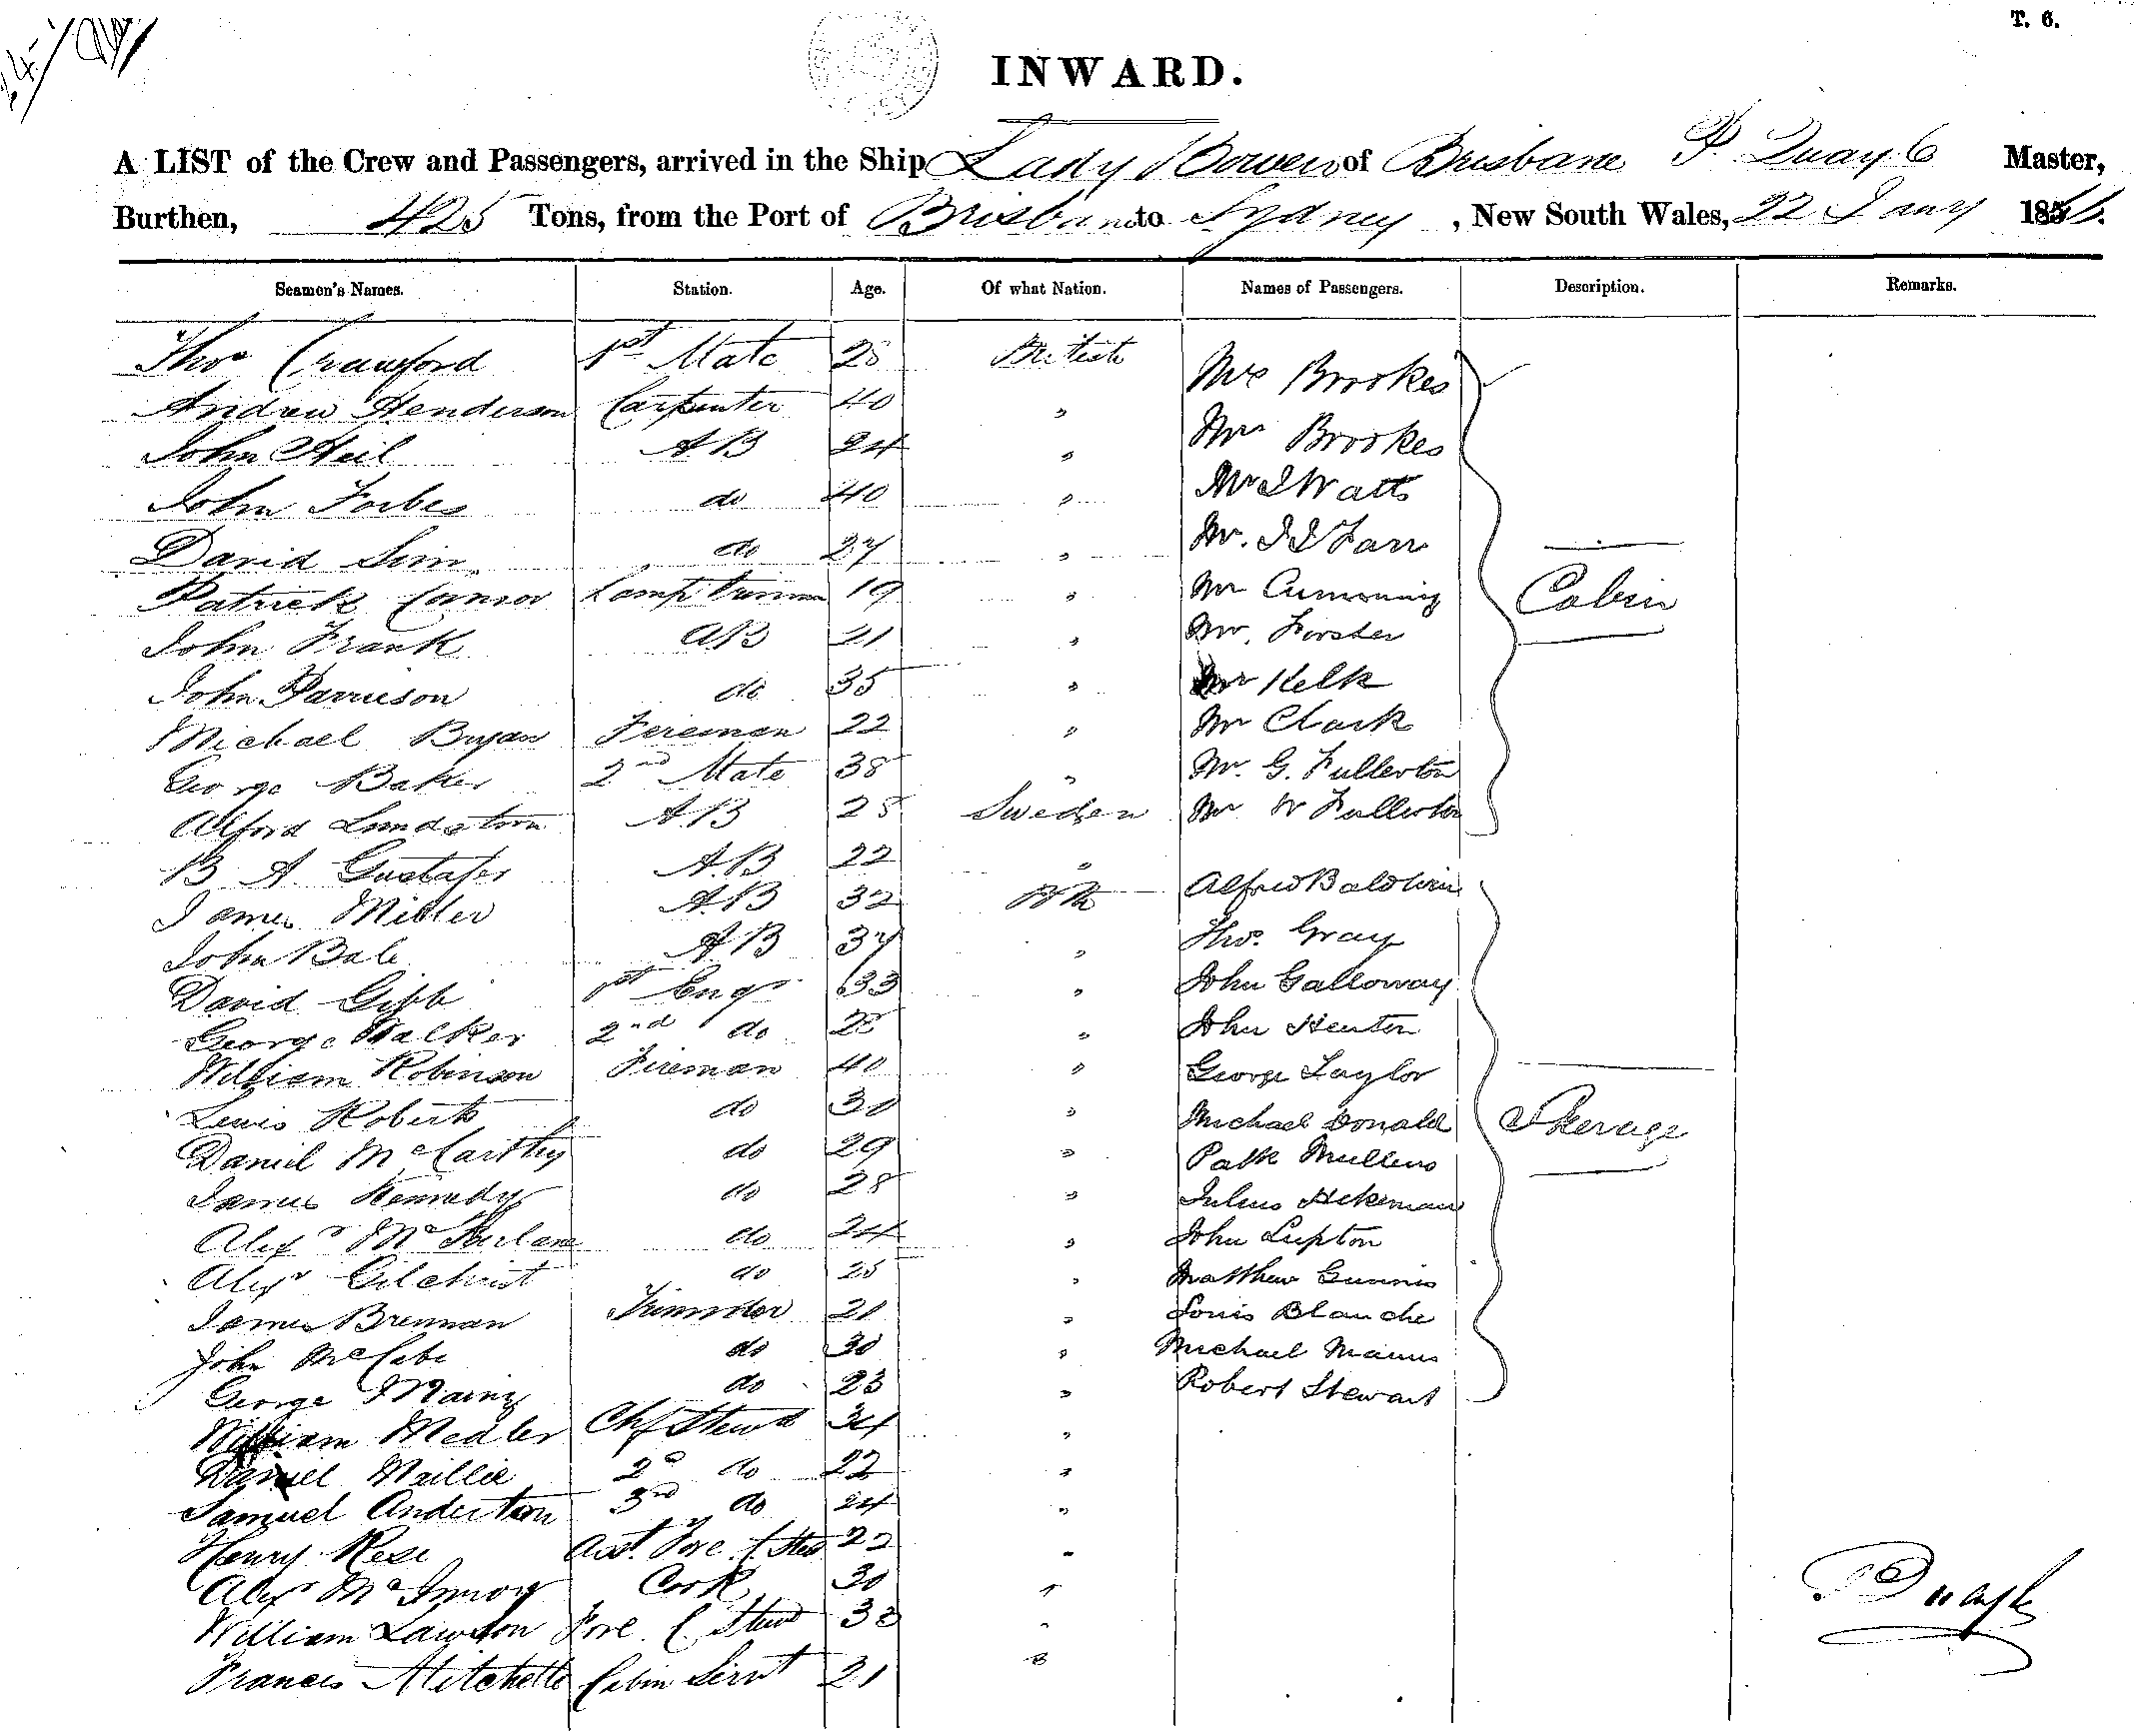 T. 6.
INWARD.
A LIST of the Crew and Passengers, arrived in the Ship Lady Bowen of Brisbane P. Quayle Master,
Burthen, 425 Tons, from the Port of Brisbane to Sydney, New South Wales, 22 Jany 186
Seamen's Names. Station. Age. Of what Nation. Names of Passengers. Description. Remarks.
Thos Crawford 1st Mate 28 British Mr Brookes
Andrew Henderson Carpenter 40 " Mrs Brookes
John Neil AB 24 " Mr J Watts
John Forbes do 40 " Mr. J J Farr
David Sim do 27 " Mr Cumming Cabin
Patrick Connor Lamp Trimmer 19 " Mr. Forster
John Frank AB 21 " Mr Kelk
John Harrison do 35 " Mr Clark
Michael Bryan Fireman 22 " Mr. G. Fullerton
George Baker 2nd Mate 38 " Mr W Fullerton
Alford Lundstrom AB 28 Sweden
B A Gustafer AB 22 " Alfred Baldwin
James Miller AB 32 Bth Thos. Gray
John Bale AB 37 " John Galloway
David Gibb 1st Engr 33 " John Henton
George Walker 2nd do 28 " George Taylor
William Robinson Fireman 40 " Michael Donald Steerage
Lewis Roberts do 30 " Patk Mullens
Daniel McCarthy do 29 " Julius Ackeman
James Kennedy do 28 " John Lupton
Alexr McFarlane do 24 " Matthew Gunnis
Alexr Gilchrist do 25 " Louis Blanche
James Brennan Trimmer 21 " Michael Manns
John McCabe do 30 " Robert Stewart
George do 23 "
William Medler Chf Stewd 34 "
Daniel Maillie 2d do 22 "
Samuel Anderton 3rd do 24 "
Henry Rese Asst. Fore C Stew 22 "
Alexr McInnoy Cook 30 "
William Lawson Fore C Stewd 33 "
Frances Mitchelle Cabin Servt 21 "
P Quayle